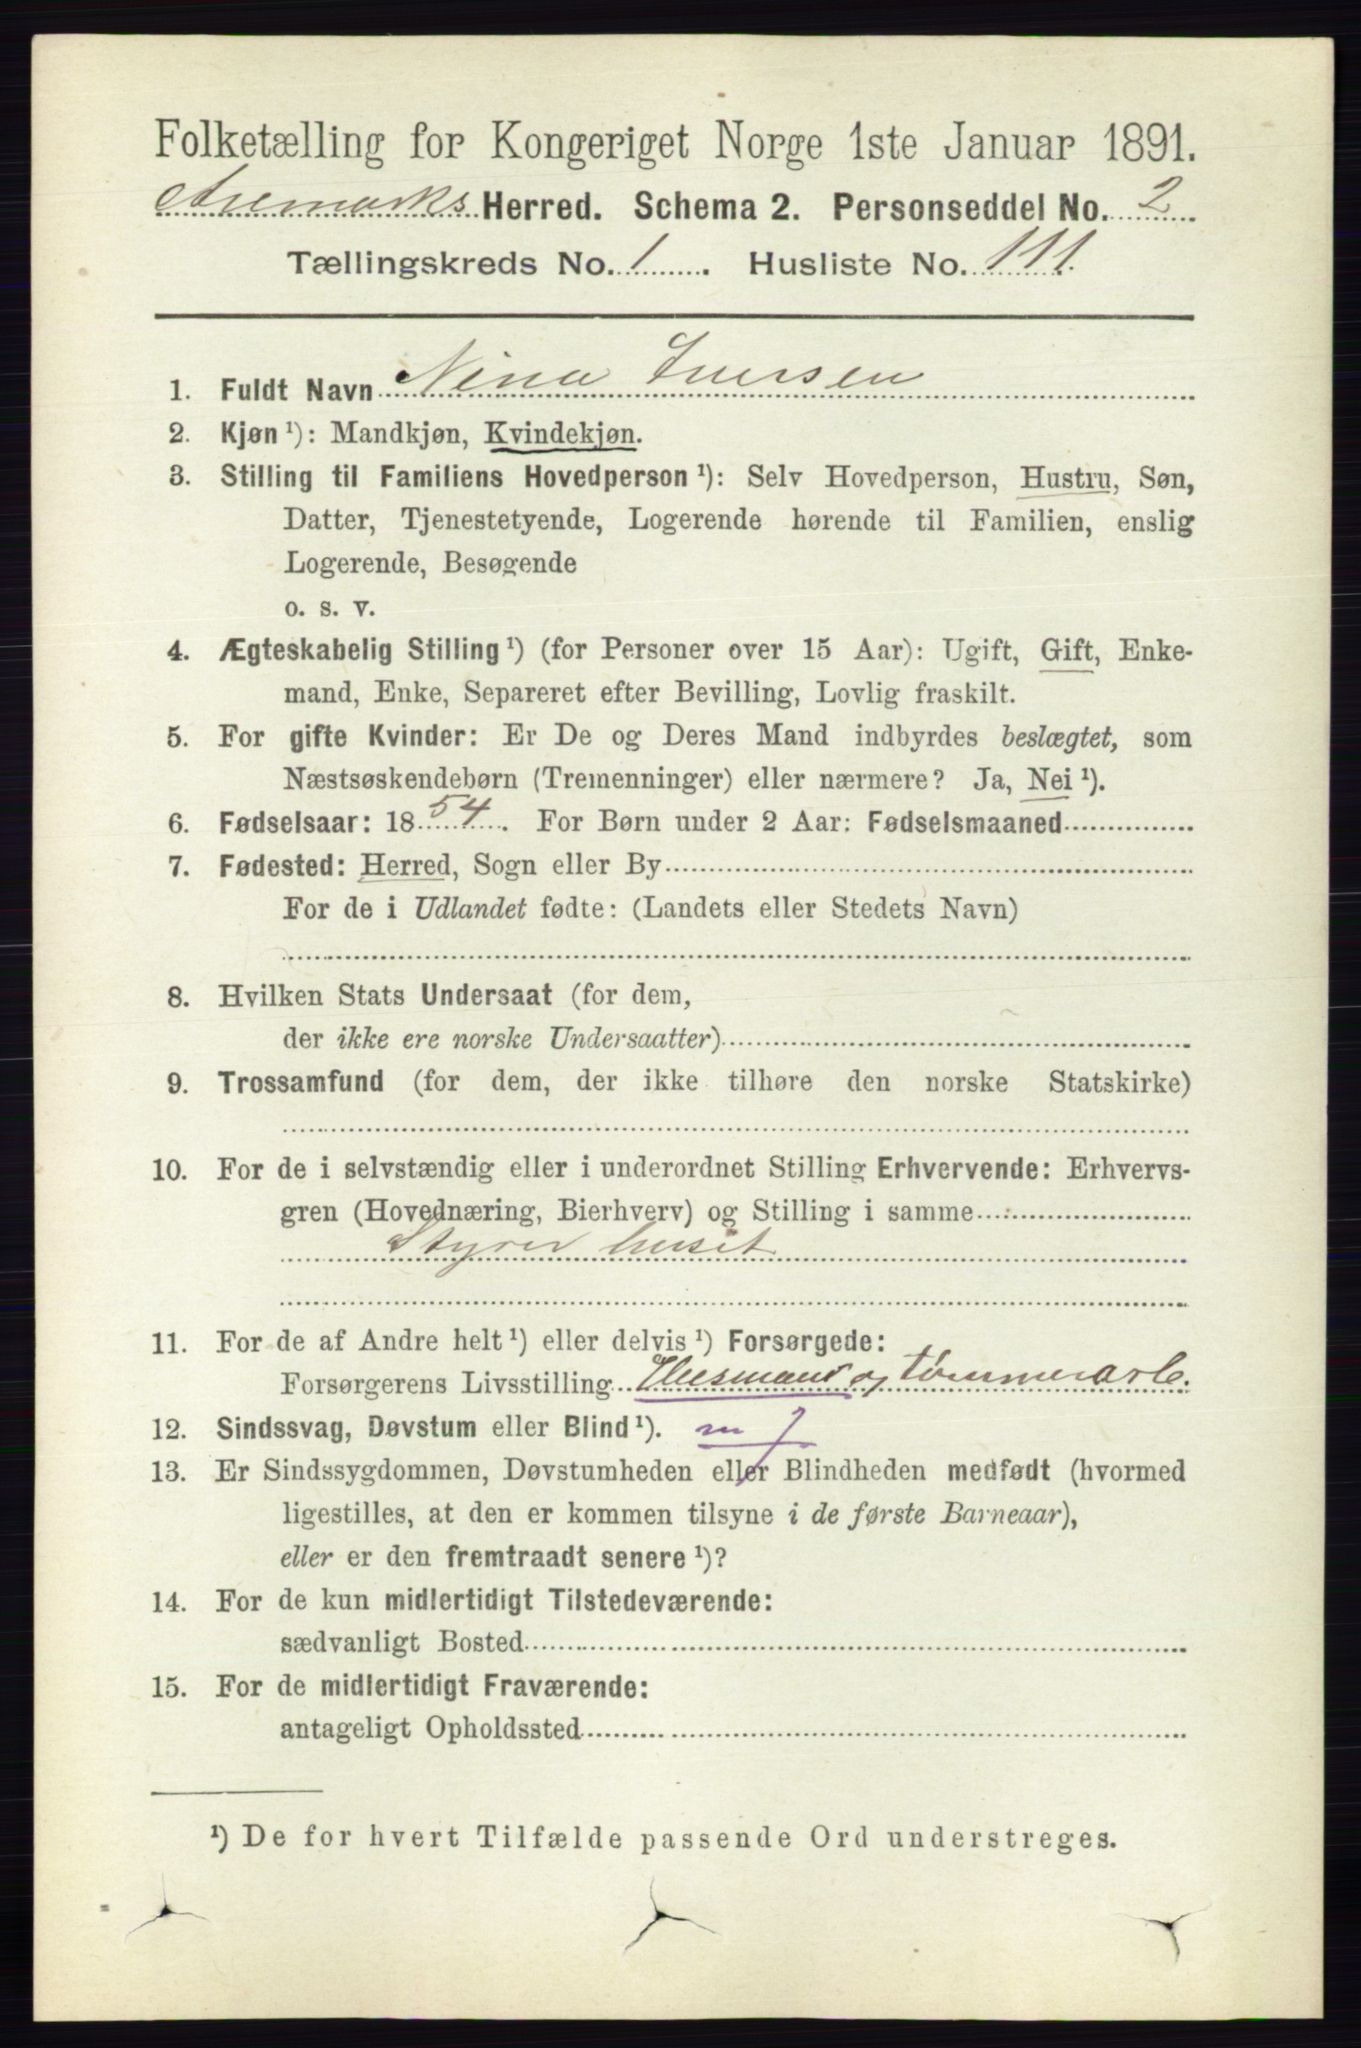 Folketælling for Kongeriget Norge 1ste Januar 1891.
Aremarks Herred. Schema 2. Personseddel No. 2
Tællingskreds No. 1. Husliste No. 111.
1. Fuldt Navn Nina Iversen
2. Kjøn ¹): Mandkjøn, Kvindekjøn.
3. Stilling til Familiens Hovedperson ¹): Selv Hovedperson, Hustru, Søn,
Datter, Tjenestetyende, Logerende hørende til Familien, enslig
Logerende, Besøgende
o. s. v.
4. Ægteskabelig Stilling ¹) (for Personer over 15 Aar): Ugift, Gift, Enke-
mand, Enke, Separeret efter Bevilling, Lovlig fraskilt.
5. For gifte Kvinder: Er De og Deres Mand indbyrdes beslægtet, som
Næstsøskendebørn (Tremenninger) eller nærmere? Ja, Nei ¹).
6. Fødselsaar: 1854. For Børn under 2 Aar: Fødselsmaaned
7. Fødested: Herred, Sogn eller By
For de i Udlandet fødte: (Landets eller Stedets Navn)
8. Hvilken Stats Undersaat (for dem,
der ikke ere norske Undersaatter)
9. Trossamfund (for dem, der ikke tilhøre den norske Statskirke)
10. For de i selvstændig eller i underordnet Stilling Erhvervende: Erhvervs-
gren (Hovednæring, Bierhverv) og Stilling i samme
Styrer huset
11. For de af Andre helt ¹) eller delvis ¹) Forsørgede:
Forsørgerens Livsstilling Husmand og tømmerarb.
12. Sindssvag, Døvstum eller Blind ¹).
13. Er Sindssygdommen, Døvstumheden eller Blindheden medfødt (hvormed
ligestilles, at den er kommen tilsyne i de første Barneaar),
eller er den fremtraadt senere ¹)?
14. For de kun midlertidigt Tilstedeværende:
sædvanligt Bosted
15. For de midlertidigt Fraværende:
antageligt Opholdssted
¹) De for hvert Tilfælde passende Ord understreges.